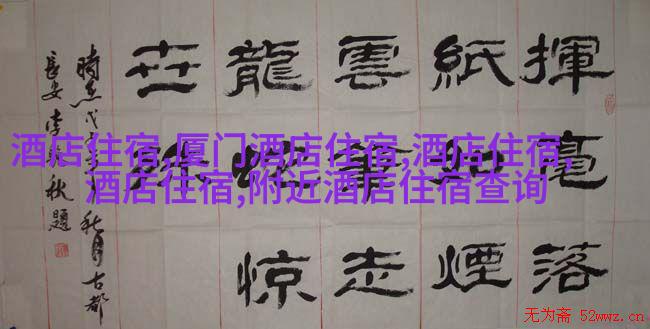 揮毫落
紙如煙
雲筆走
龍蛇惊
世殊
時在戊子年秋月古都
長安李秋題
酒店住宿,厦门酒店住宿,酒店住宿,
酒店住宿,附近酒店住宿查询
无为斋 52wwz.cn